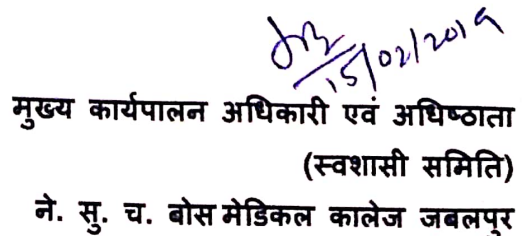 15/02/2019
मुख्य कार्यपालन अधिकारी एवं अधिष्ठाता
(स्वशासी समिति)
ने. सु. च. बोस मेडिकल कालेज जबलपुर